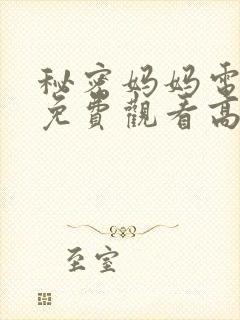 秘密妈妈电
免費觀看高
至室